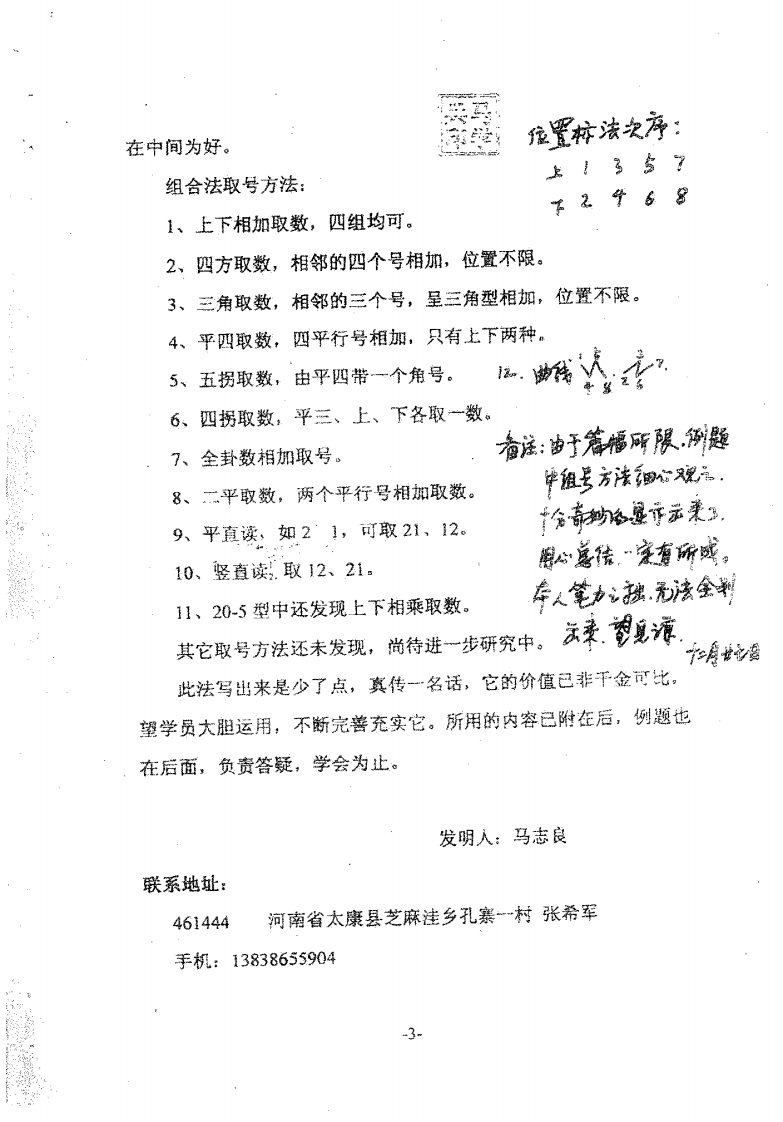 位置标法次序：
上 1 3 5 7
下 2 4 6 8
在中间为好。
组合法取号方法：
1、上下相加取数，四组均可。
2、四方取数，相邻的四个号相加，位置不限。
3、三角取数，相邻的三个号，呈三角型相加，位置不限。
4、平四取数，四平行号相加，只有上下两种。
5、五拐取数，由平四带一个角号。
12. 曲线
6、四拐取数，平三、上、下各取一数。
7、全卦数相加取号。
8、二平取数，两个平行号相加取数。
9、平直读，如2 1，可取21、12。
10、竖直读，取12、21。
11、20-5 型中还发现上下相乘取数。
备注：由于篇幅所限，例题
中组号方法细心观之.
十分奇妙的显示出来了.
用心总结，一定有所成。
本人笔力之拙，无法全判
出来，望见谅.
十二月廿七日
其它取号方法还未发现，尚待进一步研究中。
此法写出来是少了点，真传一名话，它的价值已非千金可比。
望学员大胆运用，不断完善充实它。所用的内容已附在后，例题也
在后面，负责答疑，学会为止。
发明人：马志良
联系地址：
461444 河南省太康县芝麻洼乡孔寨一村 张希军
手机：13838655904
-3-